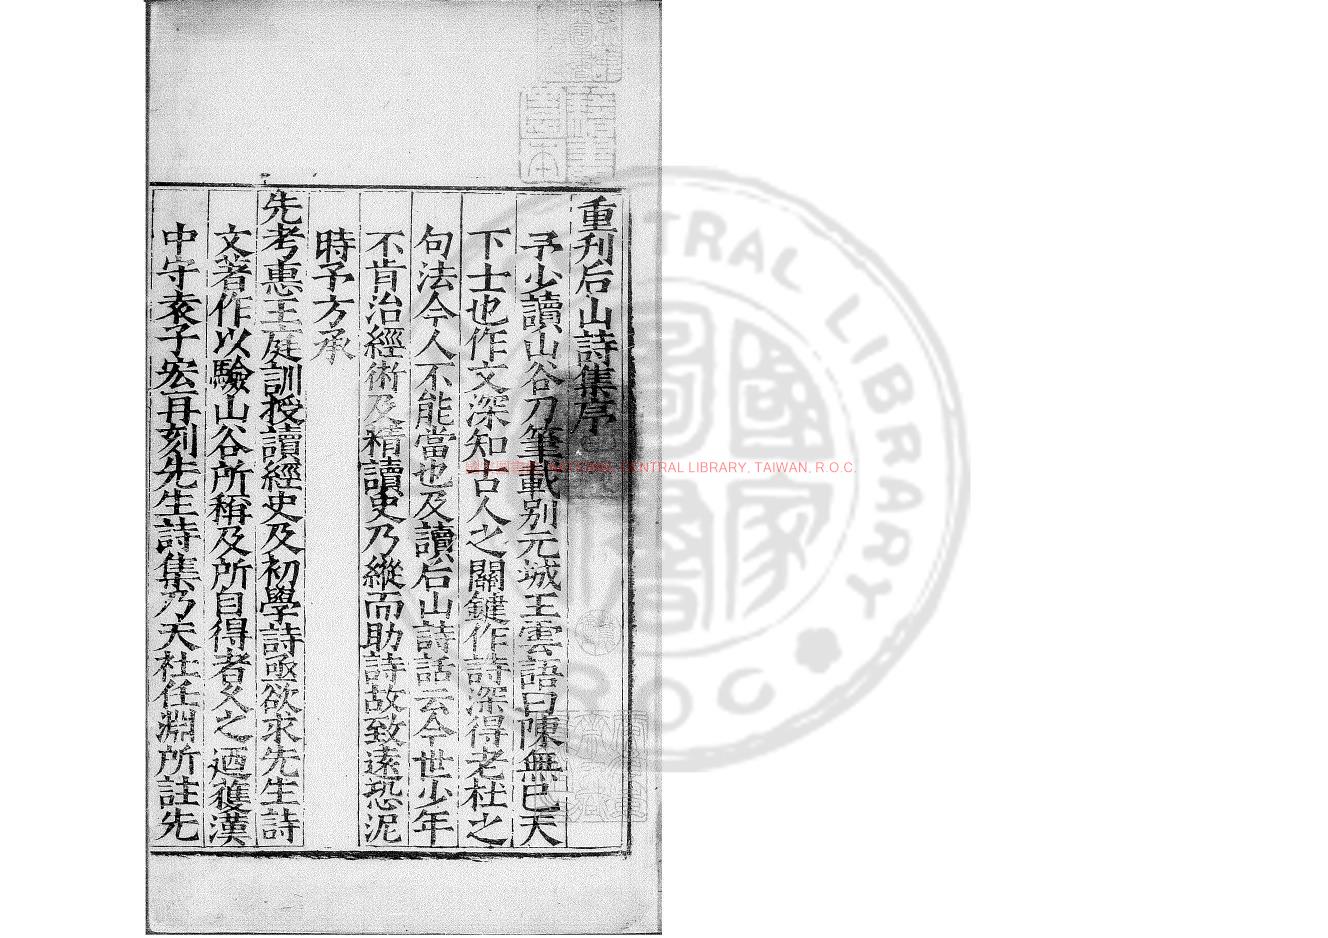 重刋后山詩集序
予少讀山谷刀筆載别元城王雲語曰陳無已天
下士也作文深知古人之關鍵作詩深得老杜之
句法今人不能當也及讀后山詩話云今世少年
不肯治經術及精讀史乃縱而助詩故致遠恐泥
時予方承
先考惠王庭訓授讀經史及初學詩亟欲求先生詩
文著作以驗山谷所稱及所自得者久之迺獲漢
中守袁子宏再刻先生詩集乃天社任淵所註先
NATIONAL CENTRAL LIBRARY, TAIWAN, R.O.C.